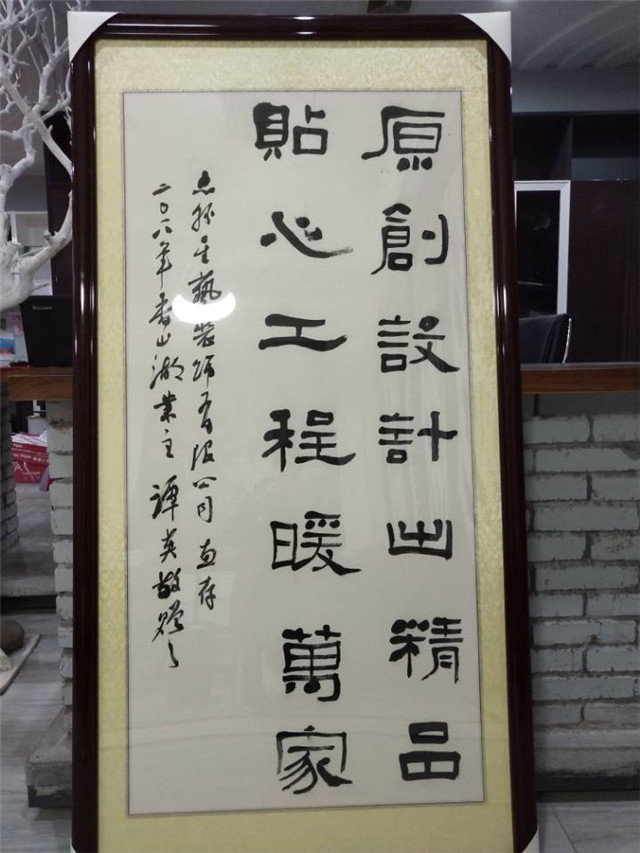 原創設計出精品
貼心工程暖萬家
星藝裝飾有限公司 惠存
二〇一八年香山湖業主 譚英敬贈